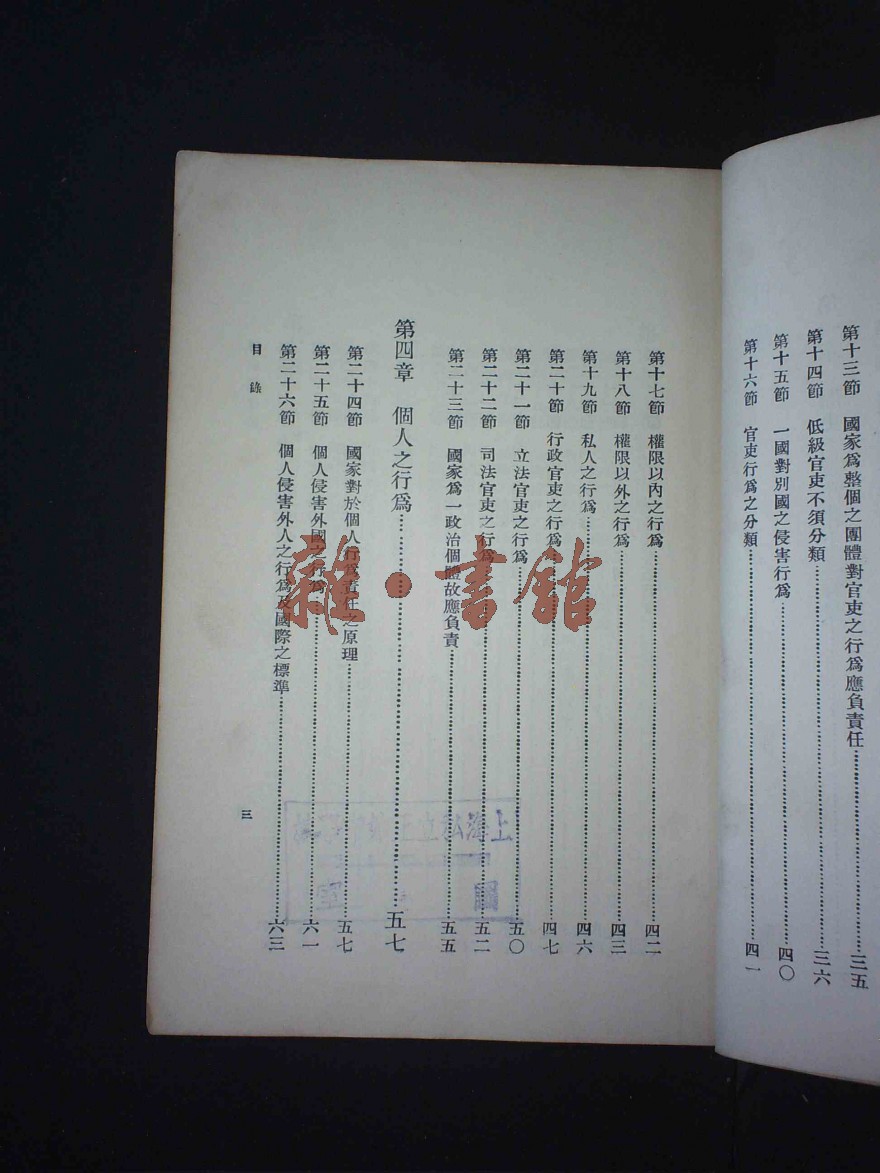 第十三節　國家爲整個之團體對官吏之行爲應負責任……三五
第十四節　低級官吏不須分類……三六
第十五節　一國對別國之侵害行爲……四〇
第十六節　官吏行爲之分類……四一
第十七節　權限以內之行爲……四二
第十八節　權限以外之行爲……四三
第十九節　私人之行爲……四六
第二十節　行政官吏之行爲……四七
第二十一節　立法官吏之行爲……五〇
第二十二節　司法官吏之行爲……五二
第二十三節　國家爲一政治個體故應負責……五五
第四章　個人之行爲……五七
第二十四節　國家對於個人行爲責任之原理……五七
第二十五節　個人侵害外國之行爲……六一
第二十六節　個人侵害外人之行爲及國際之標準……六三
目錄
三
雜·書館
上海私立
圖